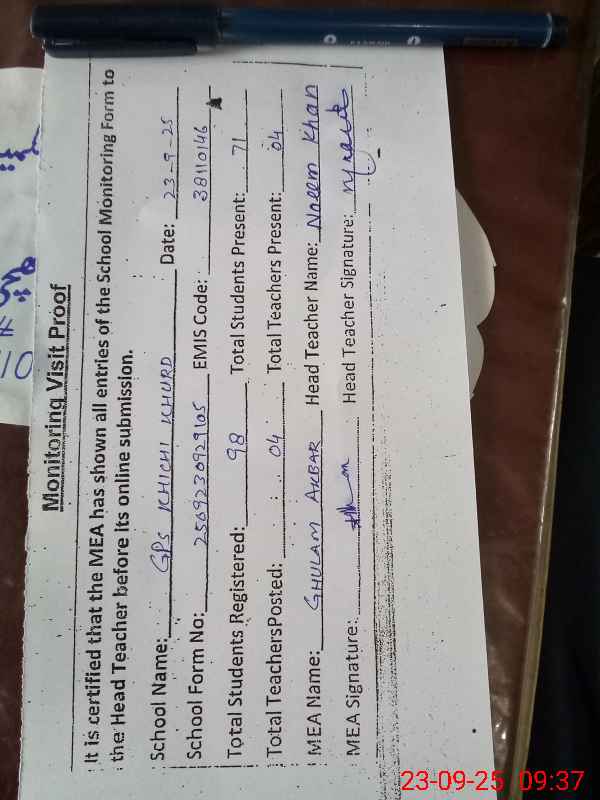 Monitoring Visit Proof
It is certified that the MEA has shown all entries of the School Monitoring Form to
the Head Teacher before its online submission.
School Name: GPS KHICHI KHURD Date: 23-9-25
School Form No: 2569230929105 EMIS Code: 38110146
Total Students Registered: 98 Total Students Present: 71
Total TeachersPosted: 04 Total Teachers Present: 04
MEA Name: GHULAM AKBAR Head Teacher Name: Naeem Khan
MEA Signature: Head Teacher Signature:
23-09-25 09:37